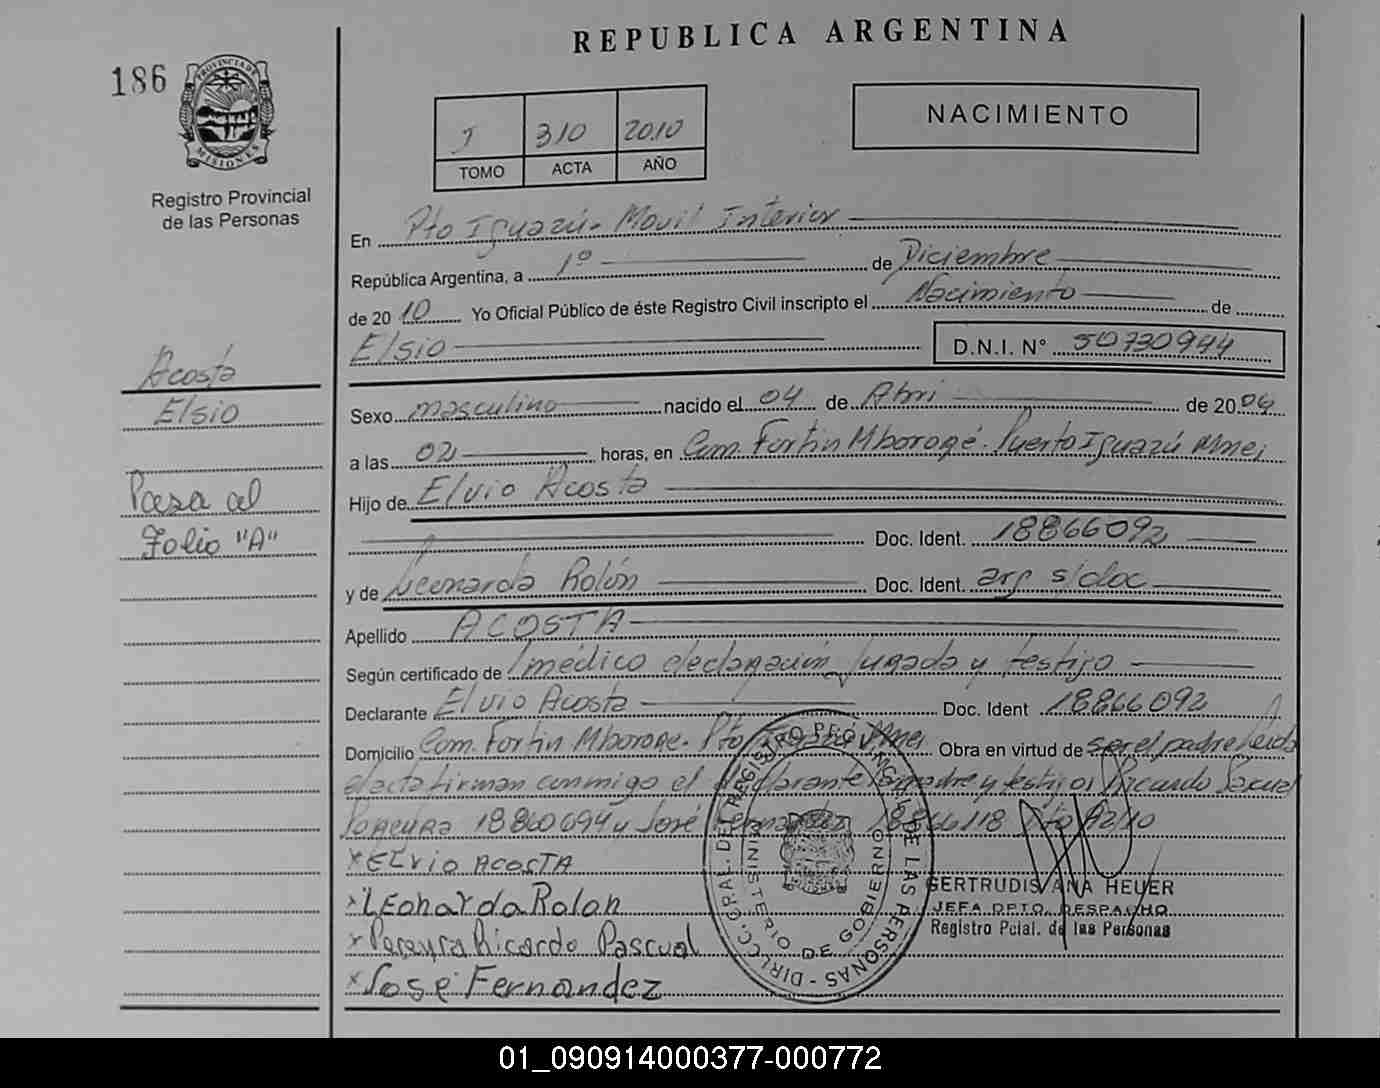 REPUBLICA ARGENTINA
186
PROVINCIA DE
MISIONES
Registro Provincial
de las Personas
310 2010
TOMO ACTA AÑO
NACIMIENTO
En Pto Iguazú - Movil Interior
República Argentina, a 1º de Diciembre
de 2010 Yo Oficial Público de éste Registro Civil inscripto el Nacimiento de
Elsio D.N.I. Nº 50730944
Acosta
Elsio
Pasa al
Folio "A"
Sexo masculino nacido el 04 de Abril de 20
a las 02 horas, en Com. Fortin Mbororé. Puerto Iguazú Mnes
Hijo de Elvio Acosta
Doc. Ident. 18866092
y de Leonarda Rolón Doc. Ident. arg s/doc
Apellido ACOSTA
Según certificado de médico declaración jurada y testigo
Declarante Elvio Acosta Doc. Ident 18866092
Domicilio Com. Fortin Mbororé. Pto Iguazú Mnes Obra en virtud de ser el padre Leida
el acta firman conmigo el declarante la madre y testigos Ricardo Pascual
Pereyra y José Fernandez 18866118
x ELVIO ACOSTA
x LEonarda Rolon
x Pereyra Ricardo Pascual
x José Fernandez
DIRECC. GRAL. DEL REGISTRO PROVINCIAL DE LAS PERSONAS -
MINISTERIO DE GOBIERNO
GERTRUDIS ANA HEUER
JEFA DPTO. DESPACHO
Registro Pcial. de las Personas
01_090914000377-000772